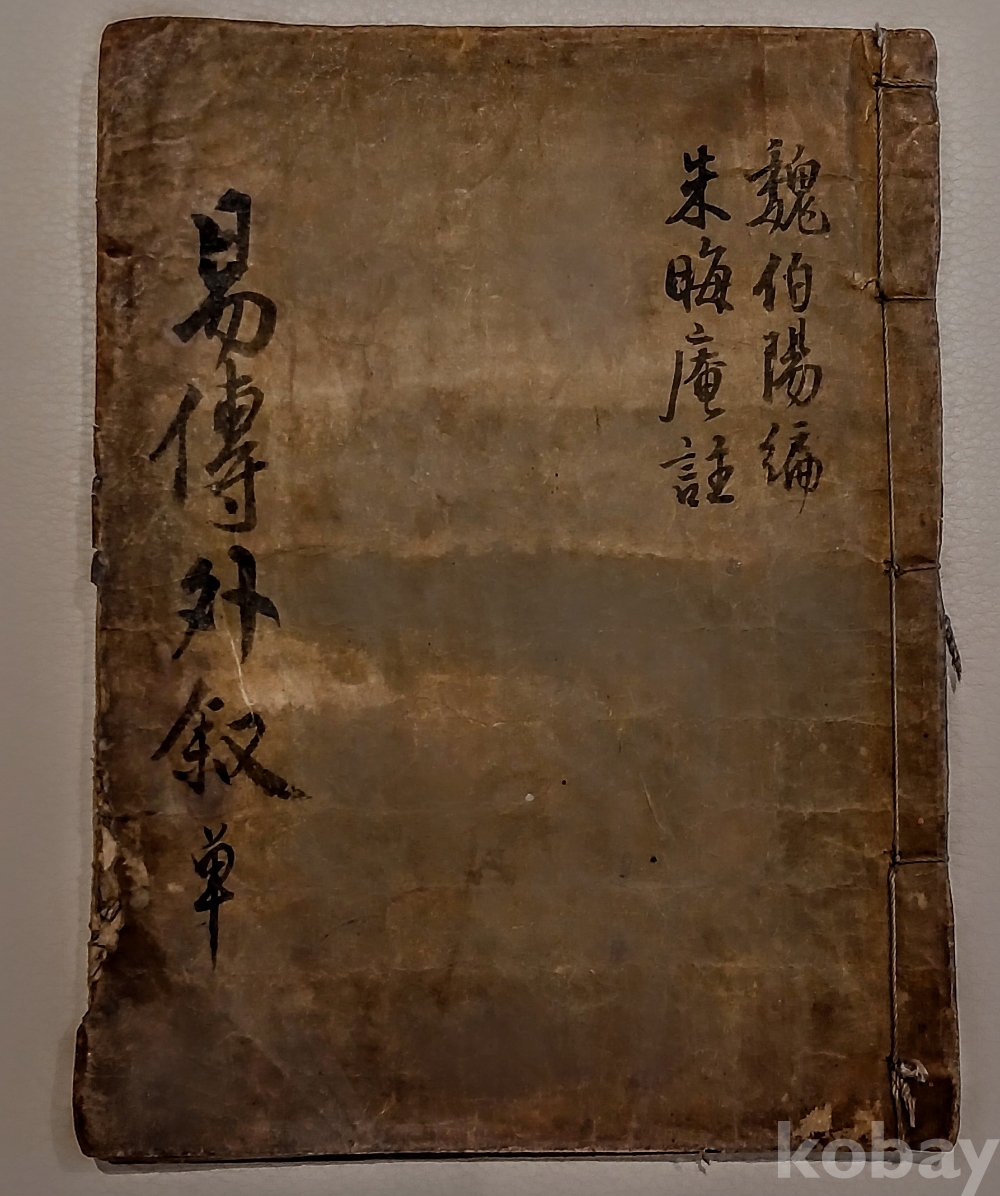 魏伯陽編
朱晦庵註
易傳外叙 单
kobay